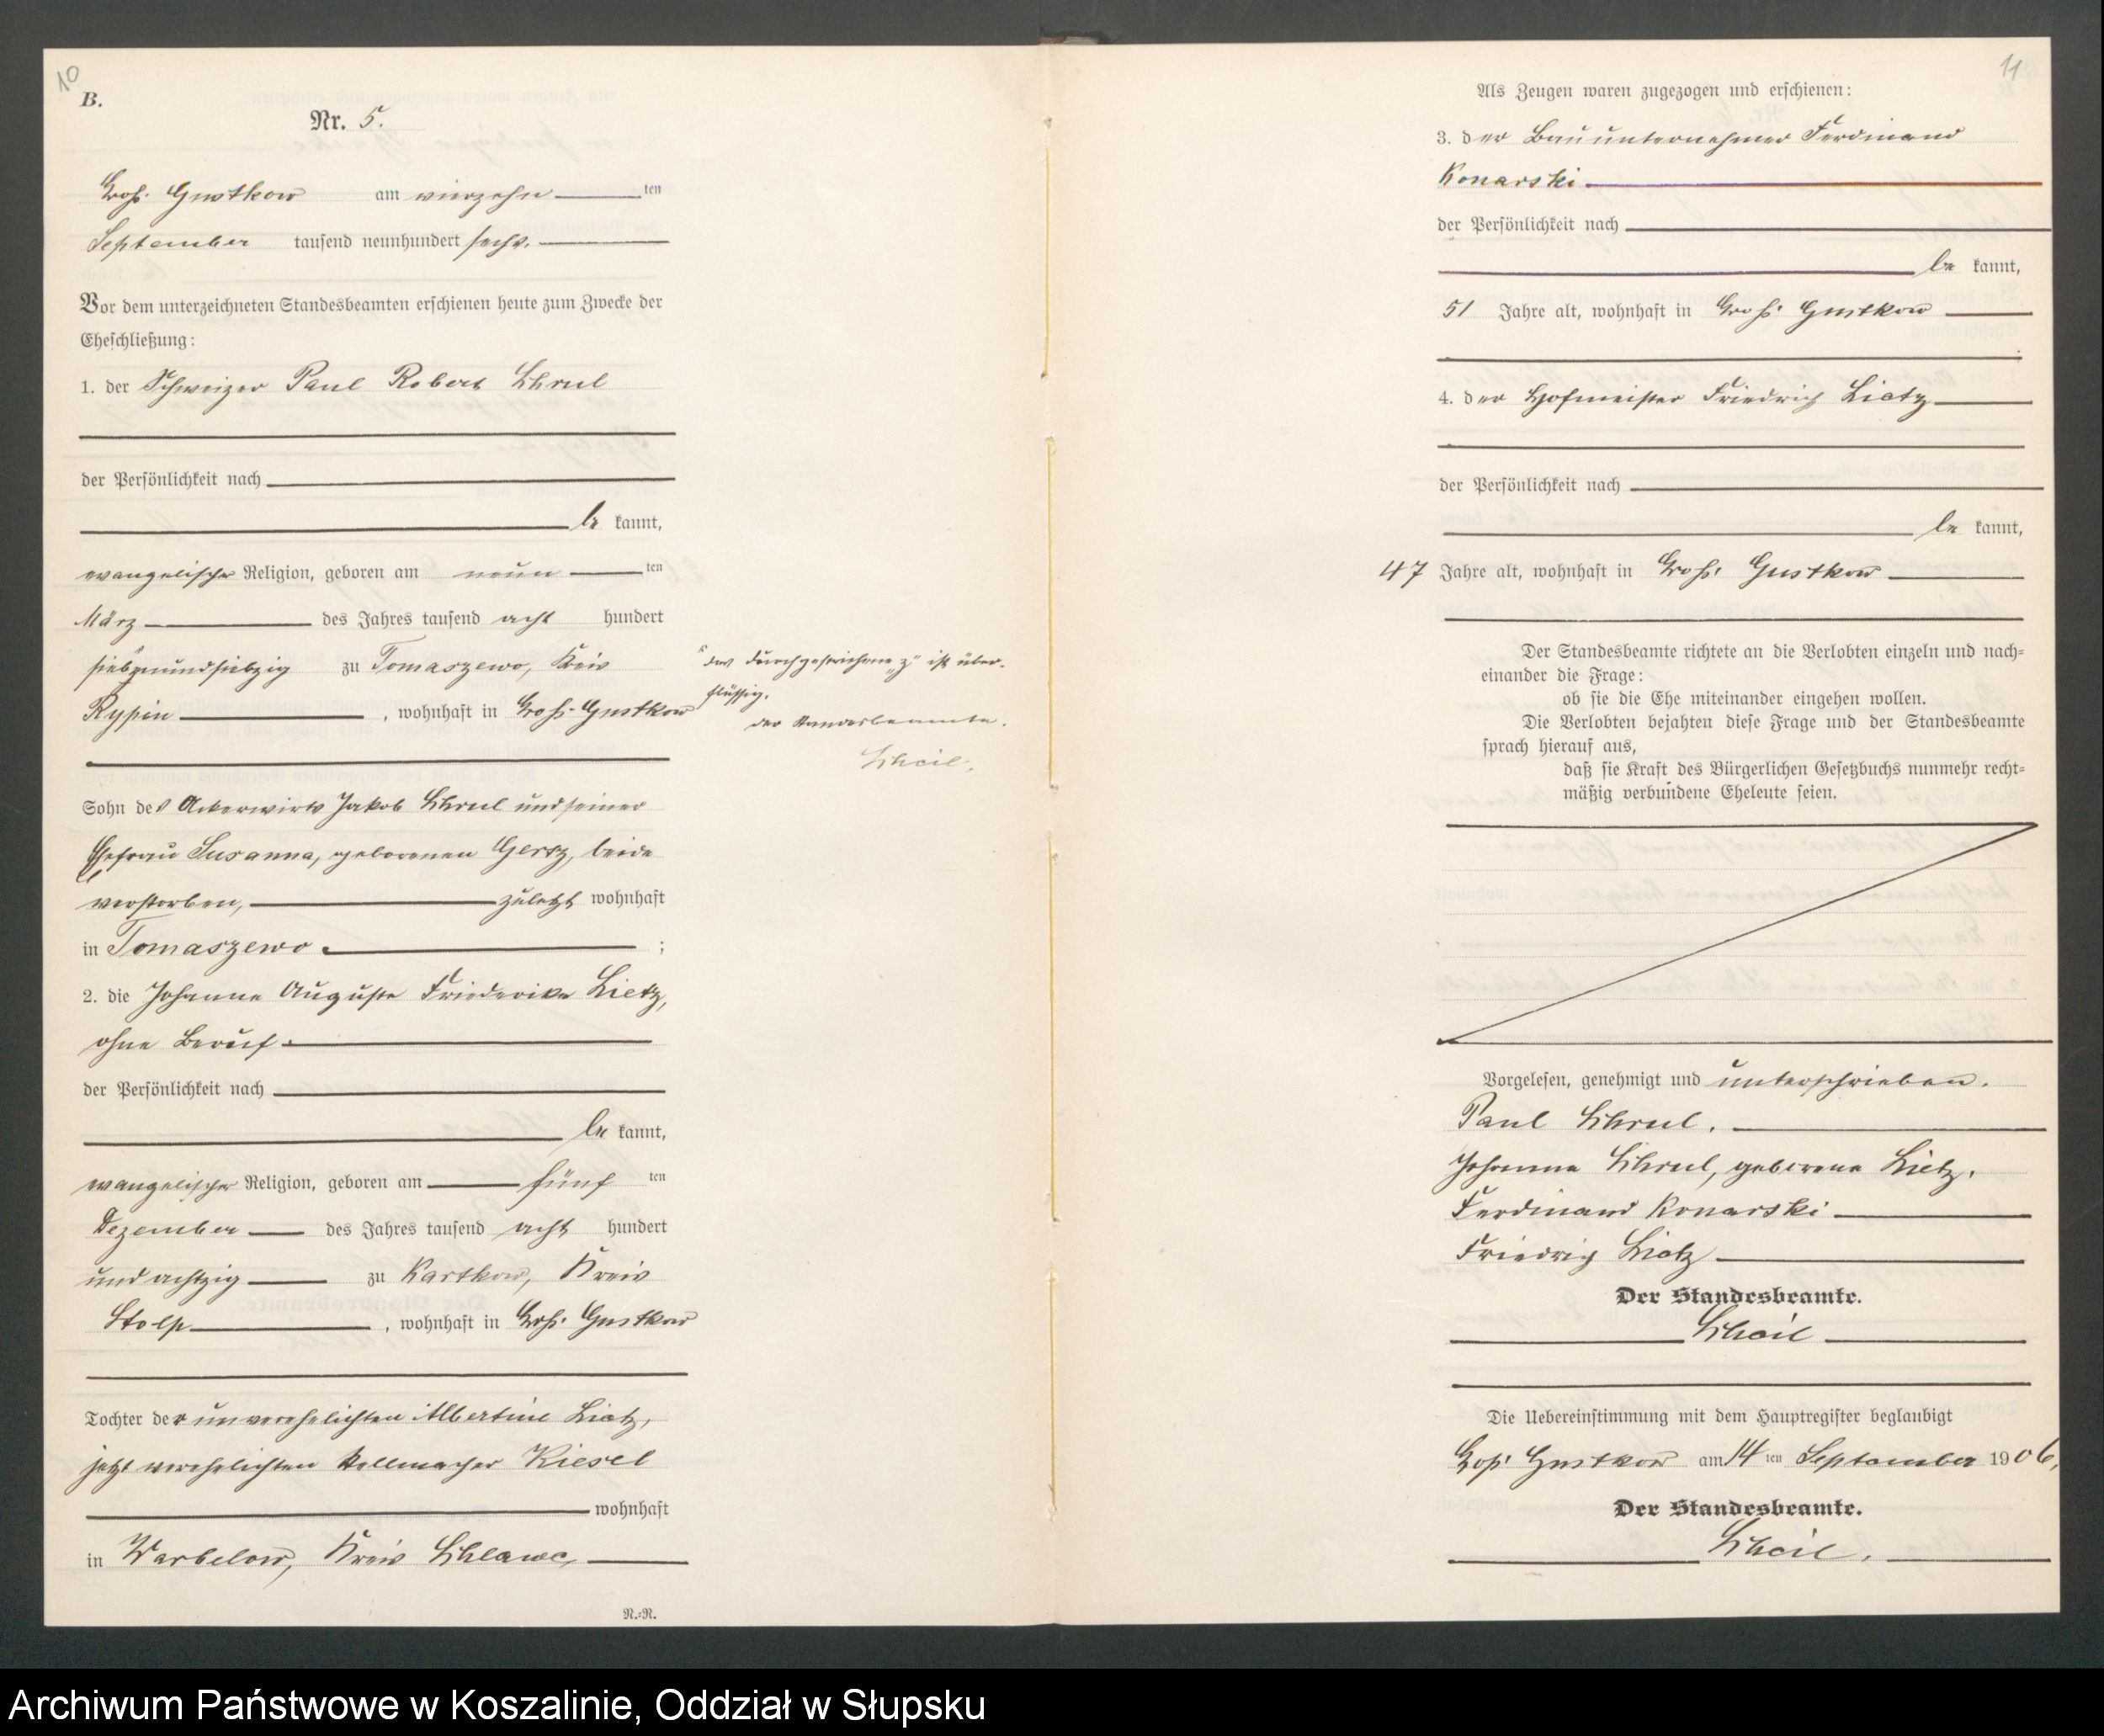 10
B.
Nr. 5.
Groß Gustkow am vierzehn ten
September tausend neunhundert sechs.
Vor dem unterzeichneten Standesbeamten erschienen heute zum Zwecke der
Eheschließung:
1. der Schweizer Paul Robert
der Persönlichkeit nach
be kannt,
evangelischer Religion, geboren am neun ten
März des Jahres tausend acht hundert
siebenundsiebzig zu Tomaszewo, Kreis
Rypin, wohnhaft in Groß Gustkow
das durchgestrichene „z" ist über-
flüssig.
der Standesbeamte.
Sohn des Ackerwirts Jakob und seiner
Ehefrau Susanna, geborenen beide
verstorben, zuletzt wohnhaft
in Tomaszewo ;
2. die Johanne Auguste Friederike Lietz,
ohne Beruf
der Persönlichkeit nach
be kannt,
evangelischer Religion, geboren am fünf ten
Dezember des Jahres tausend acht hundert
und achtzig zu Kartkow, Kreis
Stolp, wohnhaft in Groß Gustkow
Tochter der unverehelichten Albertine Lietz,
jetzt verehelichten Stellmacher Kiesel
wohnhaft
in Warbelow, Kreis Schlawe,
N.=N.
11
Als Zeugen waren zugezogen und erschienen:
3. der Bauunternehmer Ferdinand
Konarski
der Persönlichkeit nach
be kannt,
51 Jahre alt, wohnhaft in Groß Gustkow
4. der Hofmeister Friedrich Lietz
der Persönlichkeit nach
be kannt,
47 Jahre alt, wohnhaft in Groß Gustkow
Der Standesbeamte richtete an die Verlobten einzeln und nach=
einander die Frage:
ob sie die Ehe miteinander eingehen wollen.
Die Verlobten bejahten diese Frage und der Standesbeamte
sprach hierauf aus,
daß sie Kraft des Bürgerlichen Gesetzbuchs nunmehr recht=
mäßig verbundene Eheleute seien.
Vorgelesen, genehmigt und unterschrieben.
Paul
Johanne geborene Lietz.
Ferdinand Konarski
Friedrich Lietz
Der Standesbeamte.
Die Uebereinstimmung mit dem Hauptregister beglaubigt
Groß Gustkow am 14 ten September 1906.
Der Standesbeamte.
Archiwum Państwowe w Koszalinie, Oddział w Słupsku